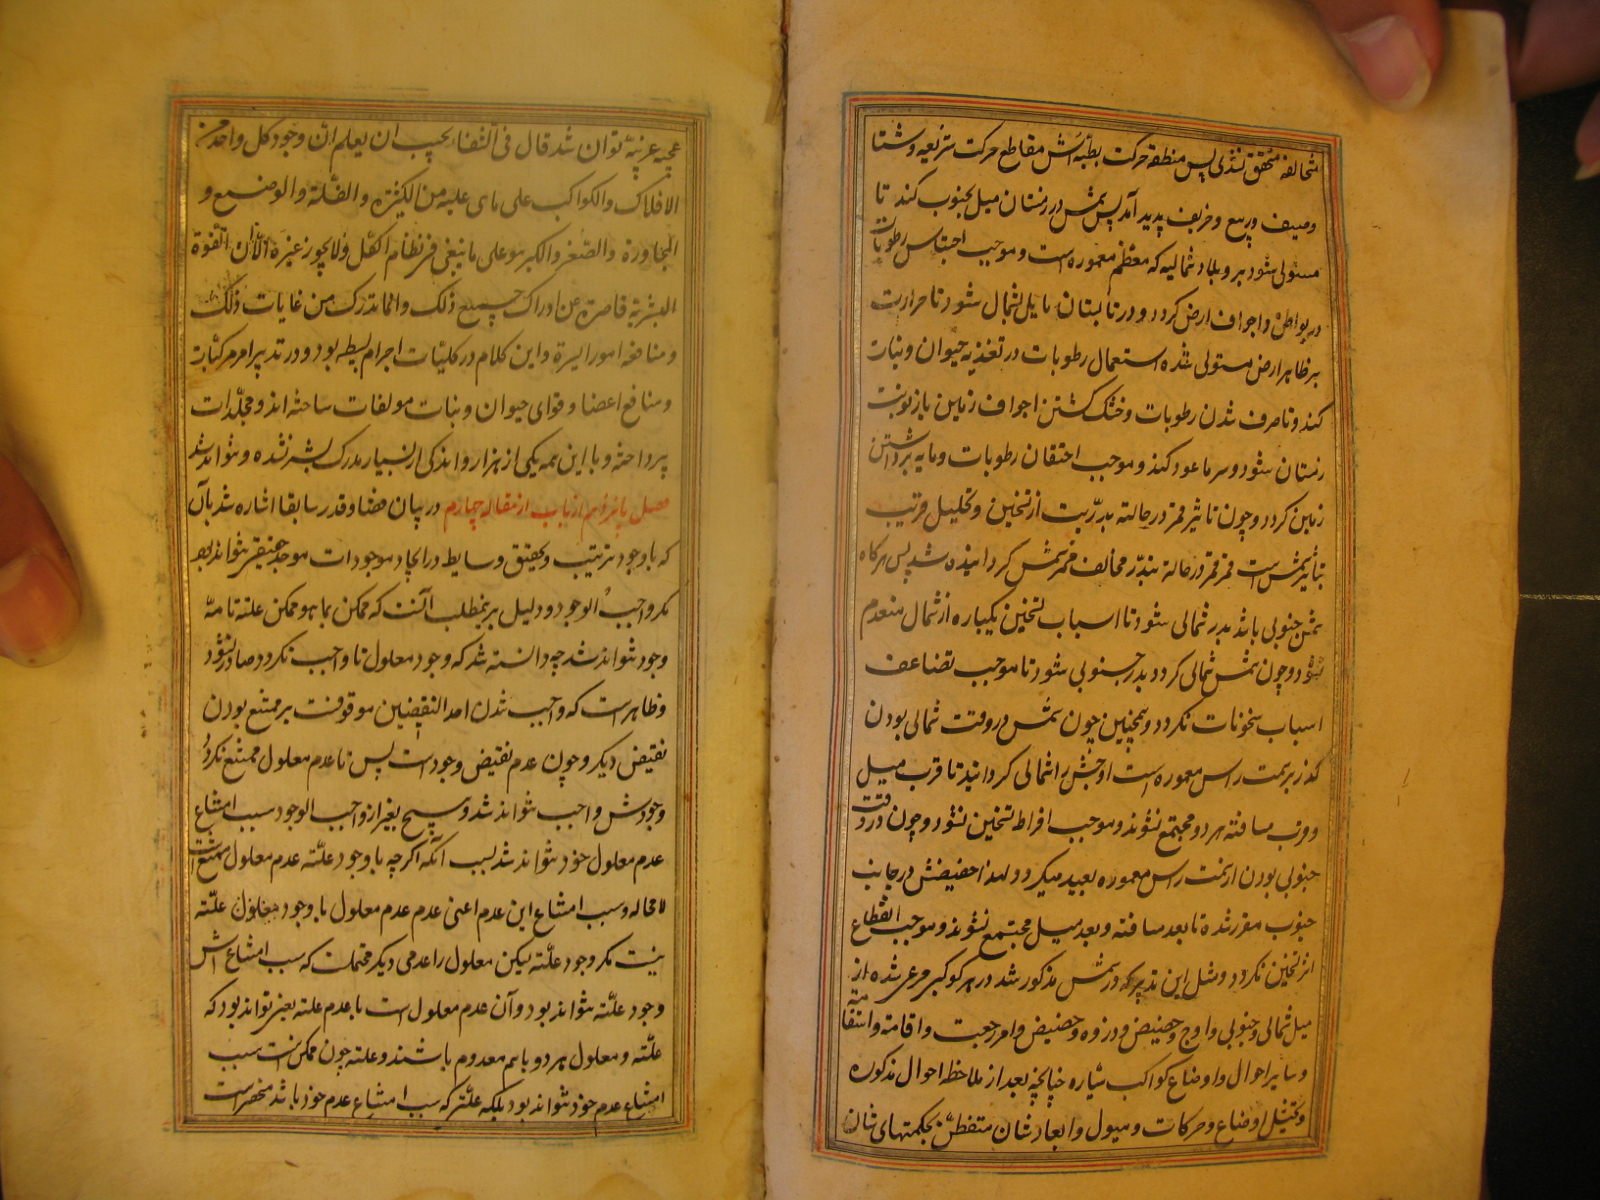 مخالفه متحقق نشدی پس منطقه حرکت بطیئه اش مقاطع حرکت سریعه وشتا
وصیف و ربیع و خریف پدید آمد پس شمس در زمستان میل بجنوب کند تا
مستولی شود برو بلاد شمالیه که معظم معموره است و موجب احتباس رطوبات
در بواطن و اجواف ارض کردد و در تابستان مایل بشمال شود تا حرارت
بر ظاهر ارض مستولی شده استعمال رطوبات در تغذیه حیوان و نبات
کند و تا صرف شدن رطوبات و خشک کشتن اجواف زمین باز نوبت
زمستان شود و سرما عود کند و موجب احتقان رطوبات و مایه برداشتن
زمین کردد و چون تاثیر قمر در حالت بدریت از تسخین و تحلیل قریب
بتاثیر شمس است ممر قمر در حالة تبدر مخالف ممر شمس کردانیده شد پس هرکاه
شمس جنوبی باشد بدر شمالی شود تا اسباب تسخین یکباره از شمال منعدم
نشود و چون شمس شمالی کردد بدر جنوبی شود تا موجب تضاعف
اسباب سخونات نکردد و همچنین چون شمس در وقت شمالی بودن
کذر بر سمت راس معموره است اوجش را شمالی کردانید تا قرب میل
و قرب مسافة هر دو مجتمع نشوند و موجب افراط تسخین نشود و چون در وقت
جنوبی بودن از سمت راس معموره بعید میکردد لهذا حضیضش در جانب
جنوب مقرر شده تا بعد مسافة و بعد میل مجتمع نشوند و موجب انقطاع
اثر تسخین نکردد و مثل این تدبیر که در شمس مذکور شد در هر کوکبی مرعی شده از
میل شمالی و جنوبی و اوج و حضیض و ذروه و حضیض و مراجعت و اقامة و استقامة
و سایر احوال و اوضاع کواکب سیاره چنانچه بعد از ملاحظه احوال مذکوره
و تخیل اوضاع و حرکات و میول و ابعاد شان متفطن بحکمتهای شان
توان شد قال فی الشفاء یجب ان یعلم ان وجود کل واحد من
الافلاک والکواکب علی ما هی علیه من الکثرة والقلة والوضع و
المجاورة والصغر والکبر هو علی ما ینبغی فی نظام الکل ولا یجوز غیره الا ان القوة
البشریة قاصرة عن ادراک جمیع ذلک وانما تدرک من غایات ذلک
ومنافعه امورا یسیرة و این کلام در کلیات اجرام بسیطه بود و در تدبیر امر مرکبات
و منافع اعضا و قوای حیوان و نبات مولفات ساخته اند و مجلدات
پرداخته و با این همه یکی از هزار و اندکی از بسیار مدرک بشر نشده و نتواند شد
فصل پانزدهم از باب از مقاله چهارم در بیان قضا و قدر سابقا اشاره شد بآن
که با وجود ترتیب و تحقیق وسایط در ایجاد موجودات موجد حقیقی نتواند بود
مکر واجب الوجود و دلیل بر مطلب آنست که ممکن بما هو ممکن علته تامه
وجود نتواند شد چه دانسته شد که وجود معلول تا واجب نکردد صادر نشود
و ظاهر است که واجب شدن احد النقیضین موقوفست بر ممتنع بودن
نقیض دیکر و چون عدم نقیض وجود است پس تا عدم معلول ممتنع نکردد
وجودش واجب نتواند شد و هیچ بغیر از واجب الوجود سبب امتناع
عدم معلول خود نتواند شد بسبب آنکه اکرچه با وجود علته عدم معلول ممتنع است
لا محاله و سبب امتناع این عدم اعنی عدم معلول با وجود علته
نیست مکر وجود علته لیکن معلول را عدمی دیکر محتملست که سبب امتناع اش
وجود علته نتواند بود و آن عدم معلول است با عدم علته یعنی تواند بود که
علته و معلول هر دو با هم معدوم باشند و علته چون ممکن است سبب
امتناع عدم خود نتواند بود بلکه علتی که سبب امتناع عدم خود باشد منحصر است